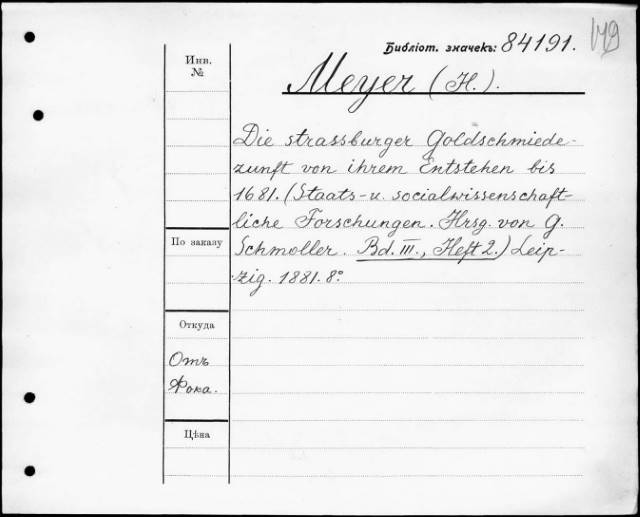 149
Библіот. значекъ: 84191.
Инв.
№
Meyer (H.).
Die strassburger Goldschmiede-
zunft von ihrem Entstehen bis
1681. (Staats- u. socialwissenschaft-
liche Forschungen. Hrsg. von G.
По заказу
Schmoller. Bd. III., Heft 2.) Leip-
zig. 1881. 8°
Откуда
Отъ
Фока.
Цѣна